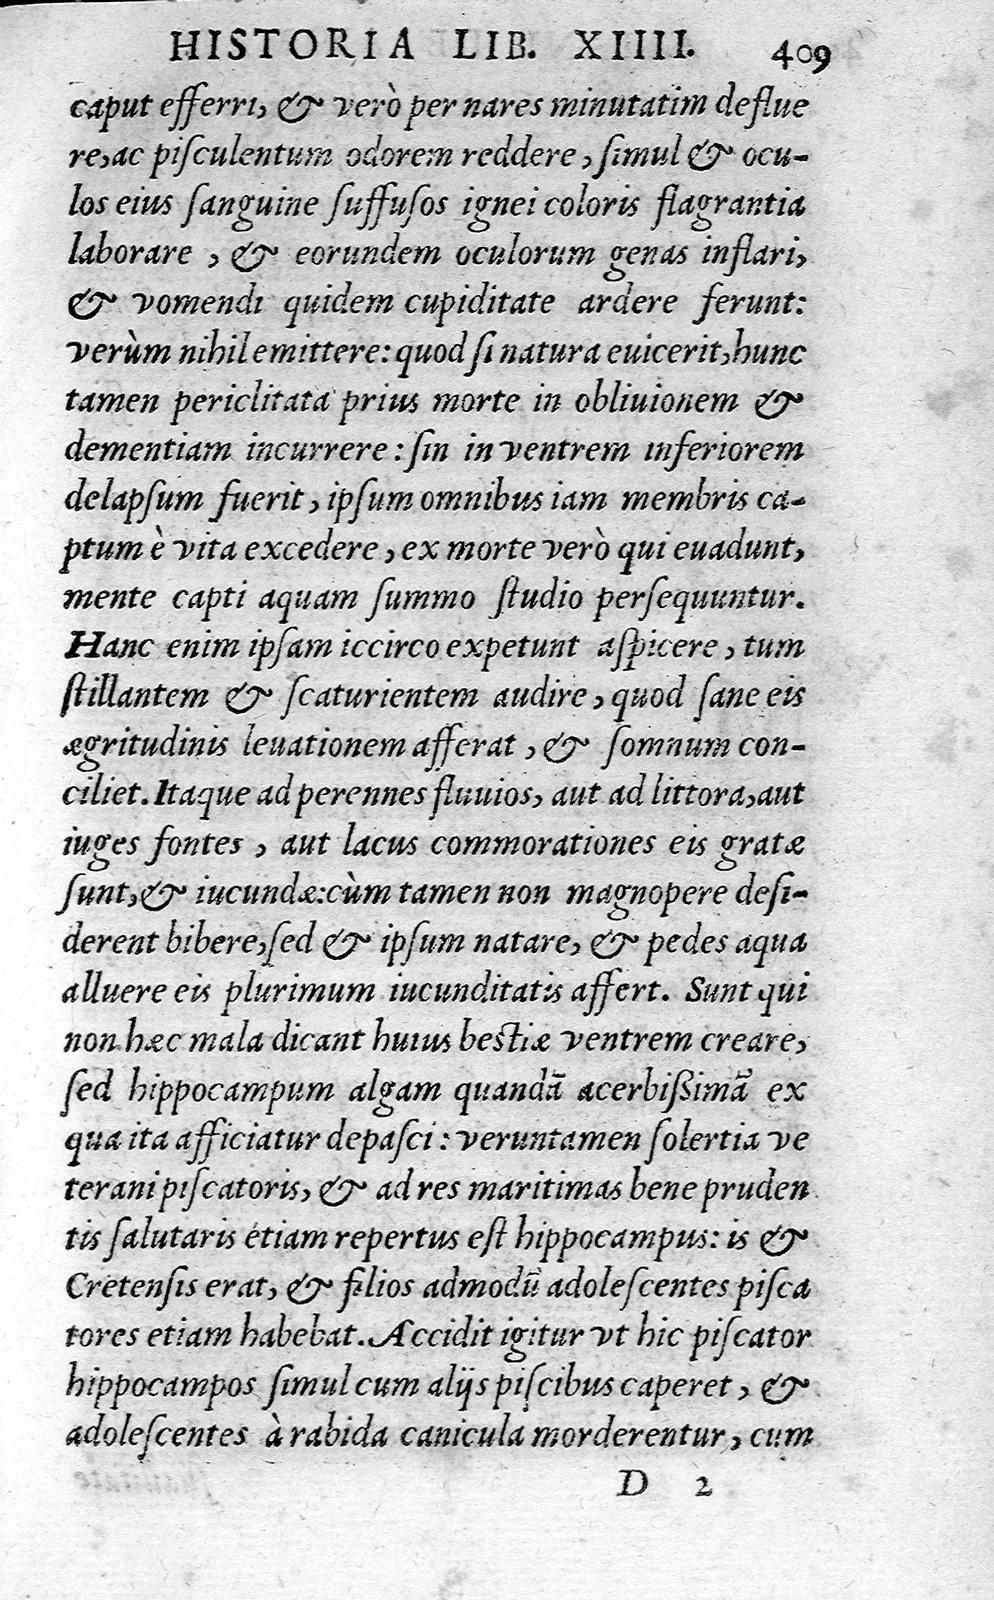 HISTORIA LIB. XIIII. 409
caput efferri, & verò per nares minutatim deflue
re, ac piſculentum odorem reddere, ſimul & ocu-
los eius ſanguine ſuffuſos ignei coloris flagrantia
laborare, & eorundem oculorum genas inflari,
& vomendi quidem cupiditate ardere ferunt:
verùm nihil emittere: quod ſi natura euicerit, hunc
tamen periclitata prius morte in obliuionem &
dementiam incurrere: ſin in ventrem inferiorem
delapſum fuerit, ipſum omnibus iam membris ca-
ptum è vita excedere, ex morte verò qui euadunt,
mente capti aquam ſummo ſtudio perſequuntur.
Hanc enim ipſam iccirco expetunt aſpicere, tum
ſtillantem & ſcaturientem audire, quod ſane eis
ægritudinis leuationem afferat, & ſomnum con-
ciliet. Itaque ad perennes fluuios, aut ad littora, aut
iuges fontes, aut lacus commorationes eis gratæ
ſunt, & iucundæ: cùm tamen non magnopere deſi-
derent bibere, ſed & ipſum natare, & pedes aqua
alluere eis plurimum iucunditatis affert. Sunt qui
non hæc mala dicant huius beſtiæ ventrem creare,
ſed hippocampum algam quandā acerbiſſimā ex
qua ita afficiatur depaſci: veruntamen ſolertia ve
terani piſcatoris, & ad res maritimas bene pruden
tis ſalutaris etiam repertus eſt hippocampus: is &
Cretenſis erat, & filios admodū adoleſcentes piſca
tores etiam habebat. Accidit igitur vt hic piſcator
hippocampos ſimul cum alijs piſcibus caperet, &
adoleſcentes à rabida canicula morderentur, cum
D 2